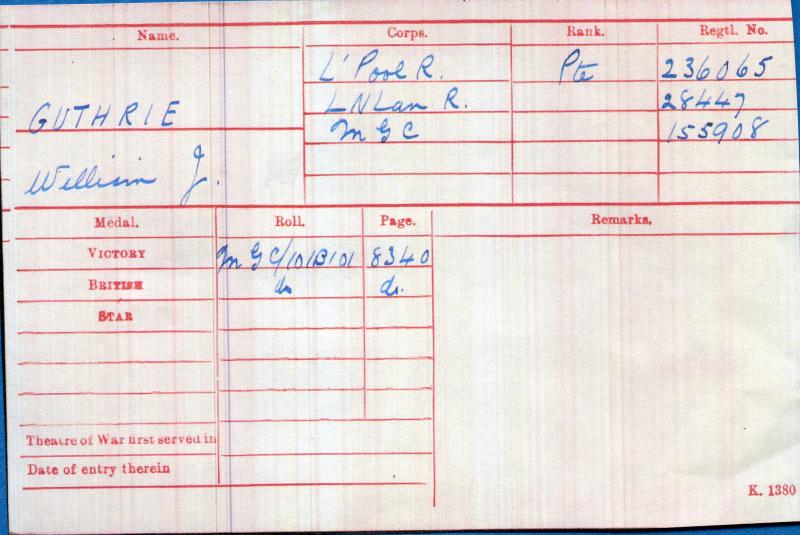 Name. Corps. Rank. Regtl. No.
L'Pool R. Pte 236065
GUTHRIE LNLan R. 28447
M G C 155908
William J.
Medal. Roll. Page. Remarks.
VICTORY M G C/101B101 8340
BRITISH do do.
STAR
Theatre of War first served in
Date of entry therein
K. 1380